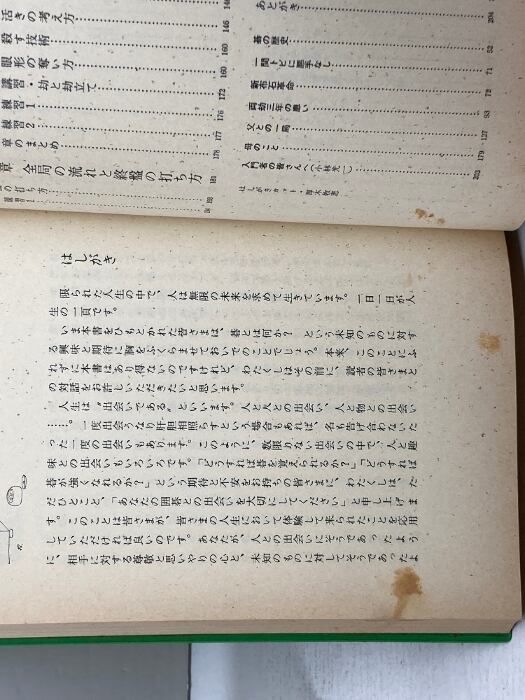 活きの考え方 146
殺す技術 160
眼形の奪い方 160
講習・劫と劫立て 172
練習1 176
練習2 177
章のまとめ 178
章 全局の流れと終盤の打ち方 181
の打ち方
あとがき 204
碁の歴史 52
一間トビに悪手なし 71
新布石革命
両劫三年の患い
父との一局 127
母のこと 179
入門者の皆さんへ(小林光一) 203
はしがき
限られた人生の中で、人は無限の未来を求めて生きています。一日一日が人
生の一頁です。
いま本書をひもとかれた皆さまは、碁とは何か？という未知のものに対す
る興味と期待に胸をふくらませておいでのことでしょう。本来、このことにふ
れずに本書はあり得ないのですけれど、わたくしはその前に、読者の皆さまと
の対話をお許しいただきたいと思います。
“人生は〝出会いである〟といいます。人と人との出会い、人と物との出会い
……。一度出会うなり肝胆相照らすという場合もあれば、名も告げ合わないた
った一度の出会いもあります。このように、数限りない出会いの中で、人と趣
味との出会いもいろいろです。「どうすれば碁を覚えられるか？」「どうすれば
碁が強くなれるか？」という期待と不安をお持ちの皆さまに、わたくしは、た
だひとこと、「あなたの囲碁との出会いを大切にしてください」と申し上げま
す。このことは皆さまが、皆さまの人生において体験して来られたことを応用
していただければ良いのです。あなたが、人との出会いにそうであったよう
に、相手に対する尊敬と思いやりの心と、未知のものに対してそうであったよ